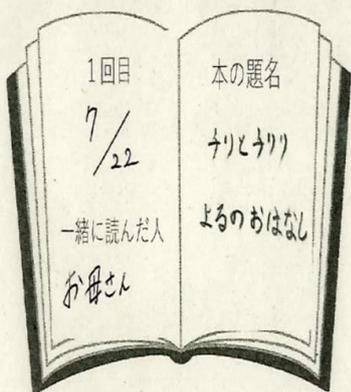 1回目
7/22
一緒に読んだ人
お母さん
本の題名
チリとチリリ
よるのおはなし